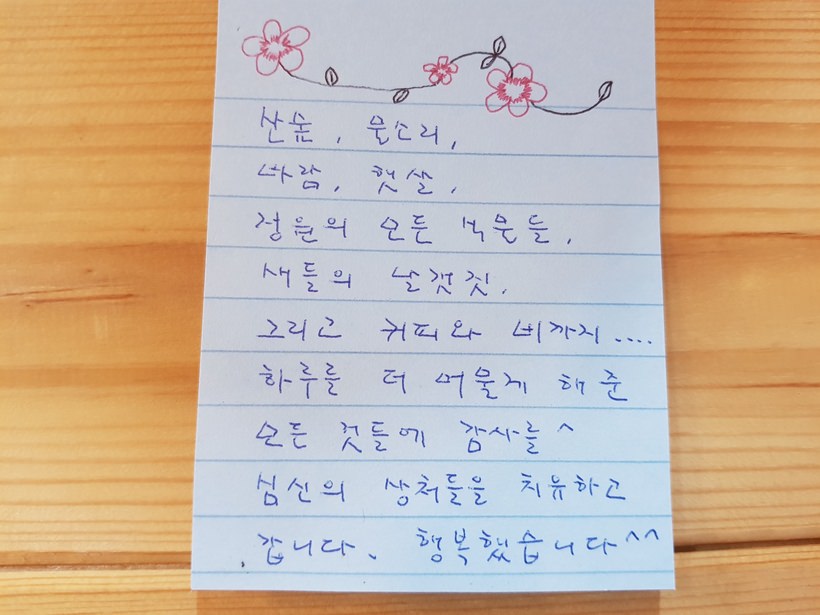 산숲, 물소리,
바람, 햇살,
정원의 모든 식물들,
새들의 날갯짓,
그리고 커피와 비까지....
하루를 더 머물게 해 준
모든 것들에 감사를 ^
심신의 상처들을 치유하고
갑니다. 행복했습니다^^